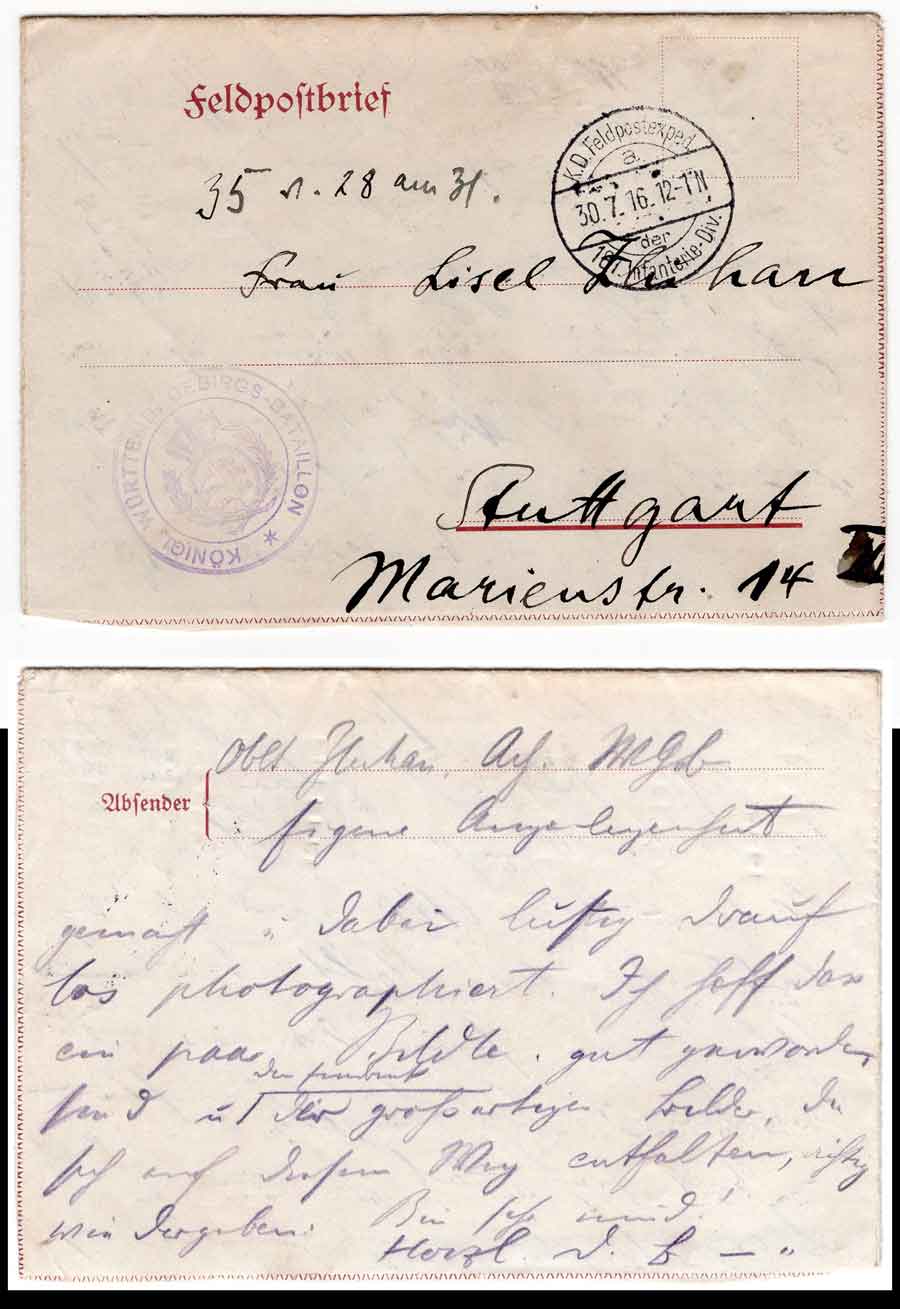 Feldpostbrief
K.D. Feldpostexped.
a.
30.7.16.12-1 N
der
Infanterie-Div.
35 n. 28 am 31.
Frau Lisel
KÖNIGL. WÜRTTEMB. GEBIRGS-BATAILLON *
Stuttgart
Marienstr. 14
Absender
Oblt
Eigene Angelegenheit
gemacht u dabei lustig drauf
los photographiert. Ich hoff dass
ein paar Bildle gut geworden
sind u
den Eindruck
der großartigen Bilder, die
sich auf diesem Weg entfalten, richtig
wiedergeben. Bin sehr müd!
Herzl. D.